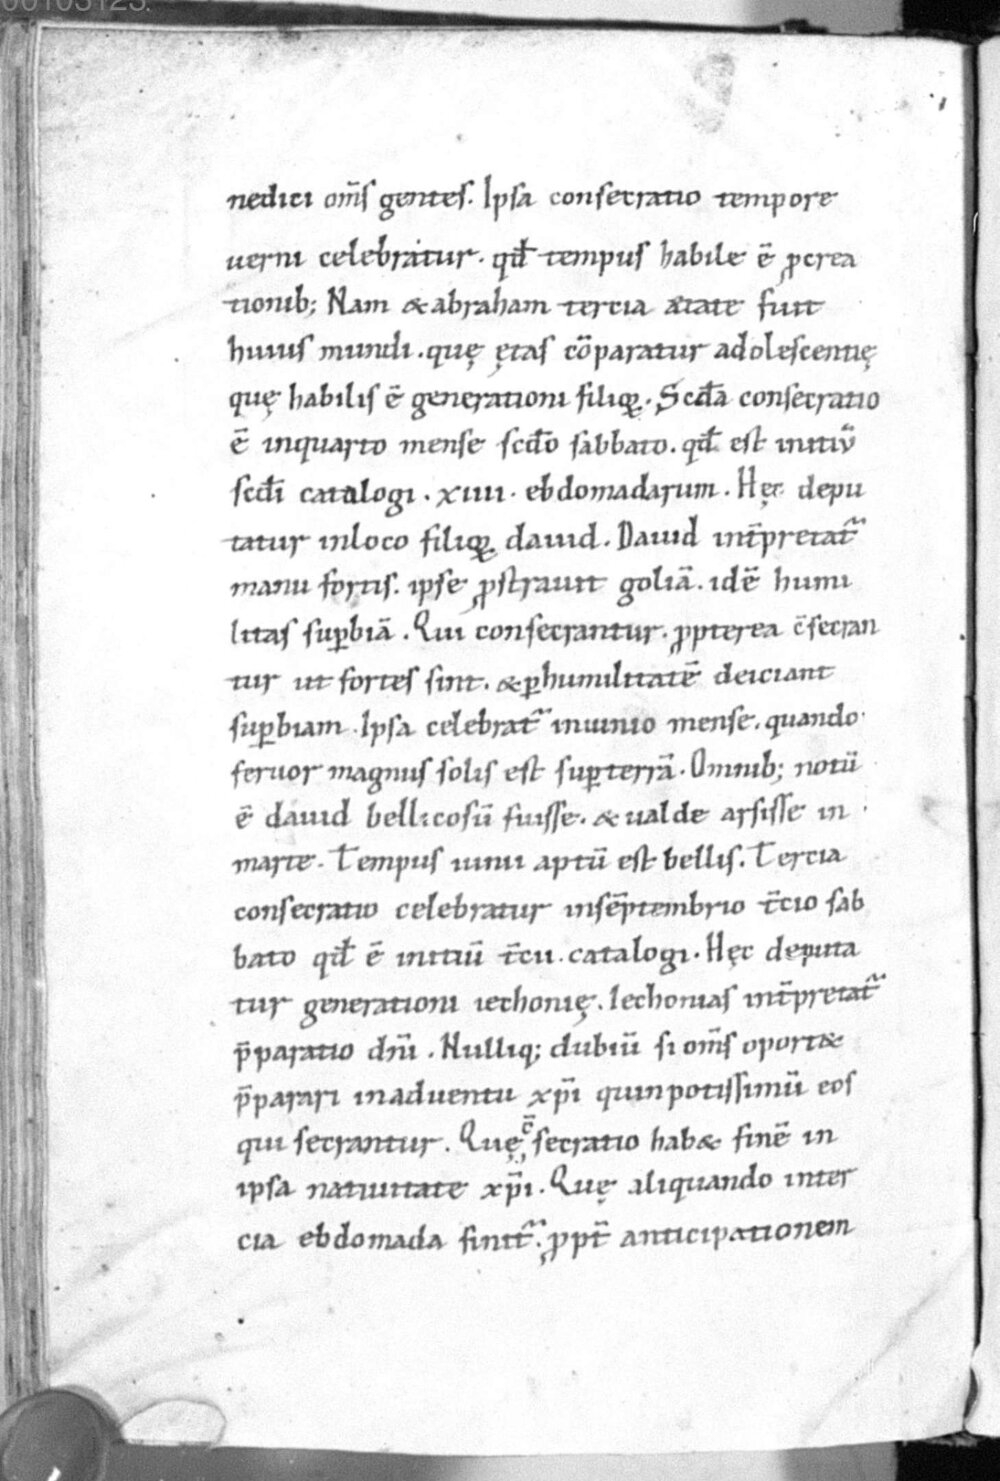 nedici om̄s gentes. Ipsa consecratio tempore
uerni celebratur. qđ tempus habile ē ꝓcrea
tionib; Nam & abraham tercia ætate fuit
huius mundi. quę ętas cōparatur adolescentię
quę habilis ē generationi filioꝝ. Scđa consecratio
ē inquarto mense scđo sabbato. qđ est initiū
scđi catalogi. xiiii. ebdomadarum. Hęc depu
tatur inloco filioꝝ dauid. Dauid int̄pretat᷑
manu fortis. ipse ꝓstrauit goliā. idē humi
litas suꝑbiā. Qui consecrantur. ꝓpterea c̄secran
tur ut fortes sint. & ꝑhumilitatē deiciant
suꝑbiam. Ipsa celebrat᷑ iniunio mense. quando
feruor magnus solis est suꝑterrā. Omnib; notū
ē dauid bellicosū fuisse. & ualde arsisse in
marte. Tempus iunii aptū est bellis. Tercia
consecratio celebratur insēptembrio t̄cio sab
bato qđ ē initiū t̄cii. catalogi. Hęc deputa
tur generationi iechonię. Iechonias int̄pretat᷑
p̄paratio dn̄i. Nulliq; dubiū si om̄s oport&
p̄parari inaduentu xp̄i quinpotissimū eos
qui secrantur. Quę c̄secratio hab& finē in
ipsa natiuitate xp̄i. Quę aliquando inter
cia ebdomada finit᷑. ꝓpt̄ anticipationem